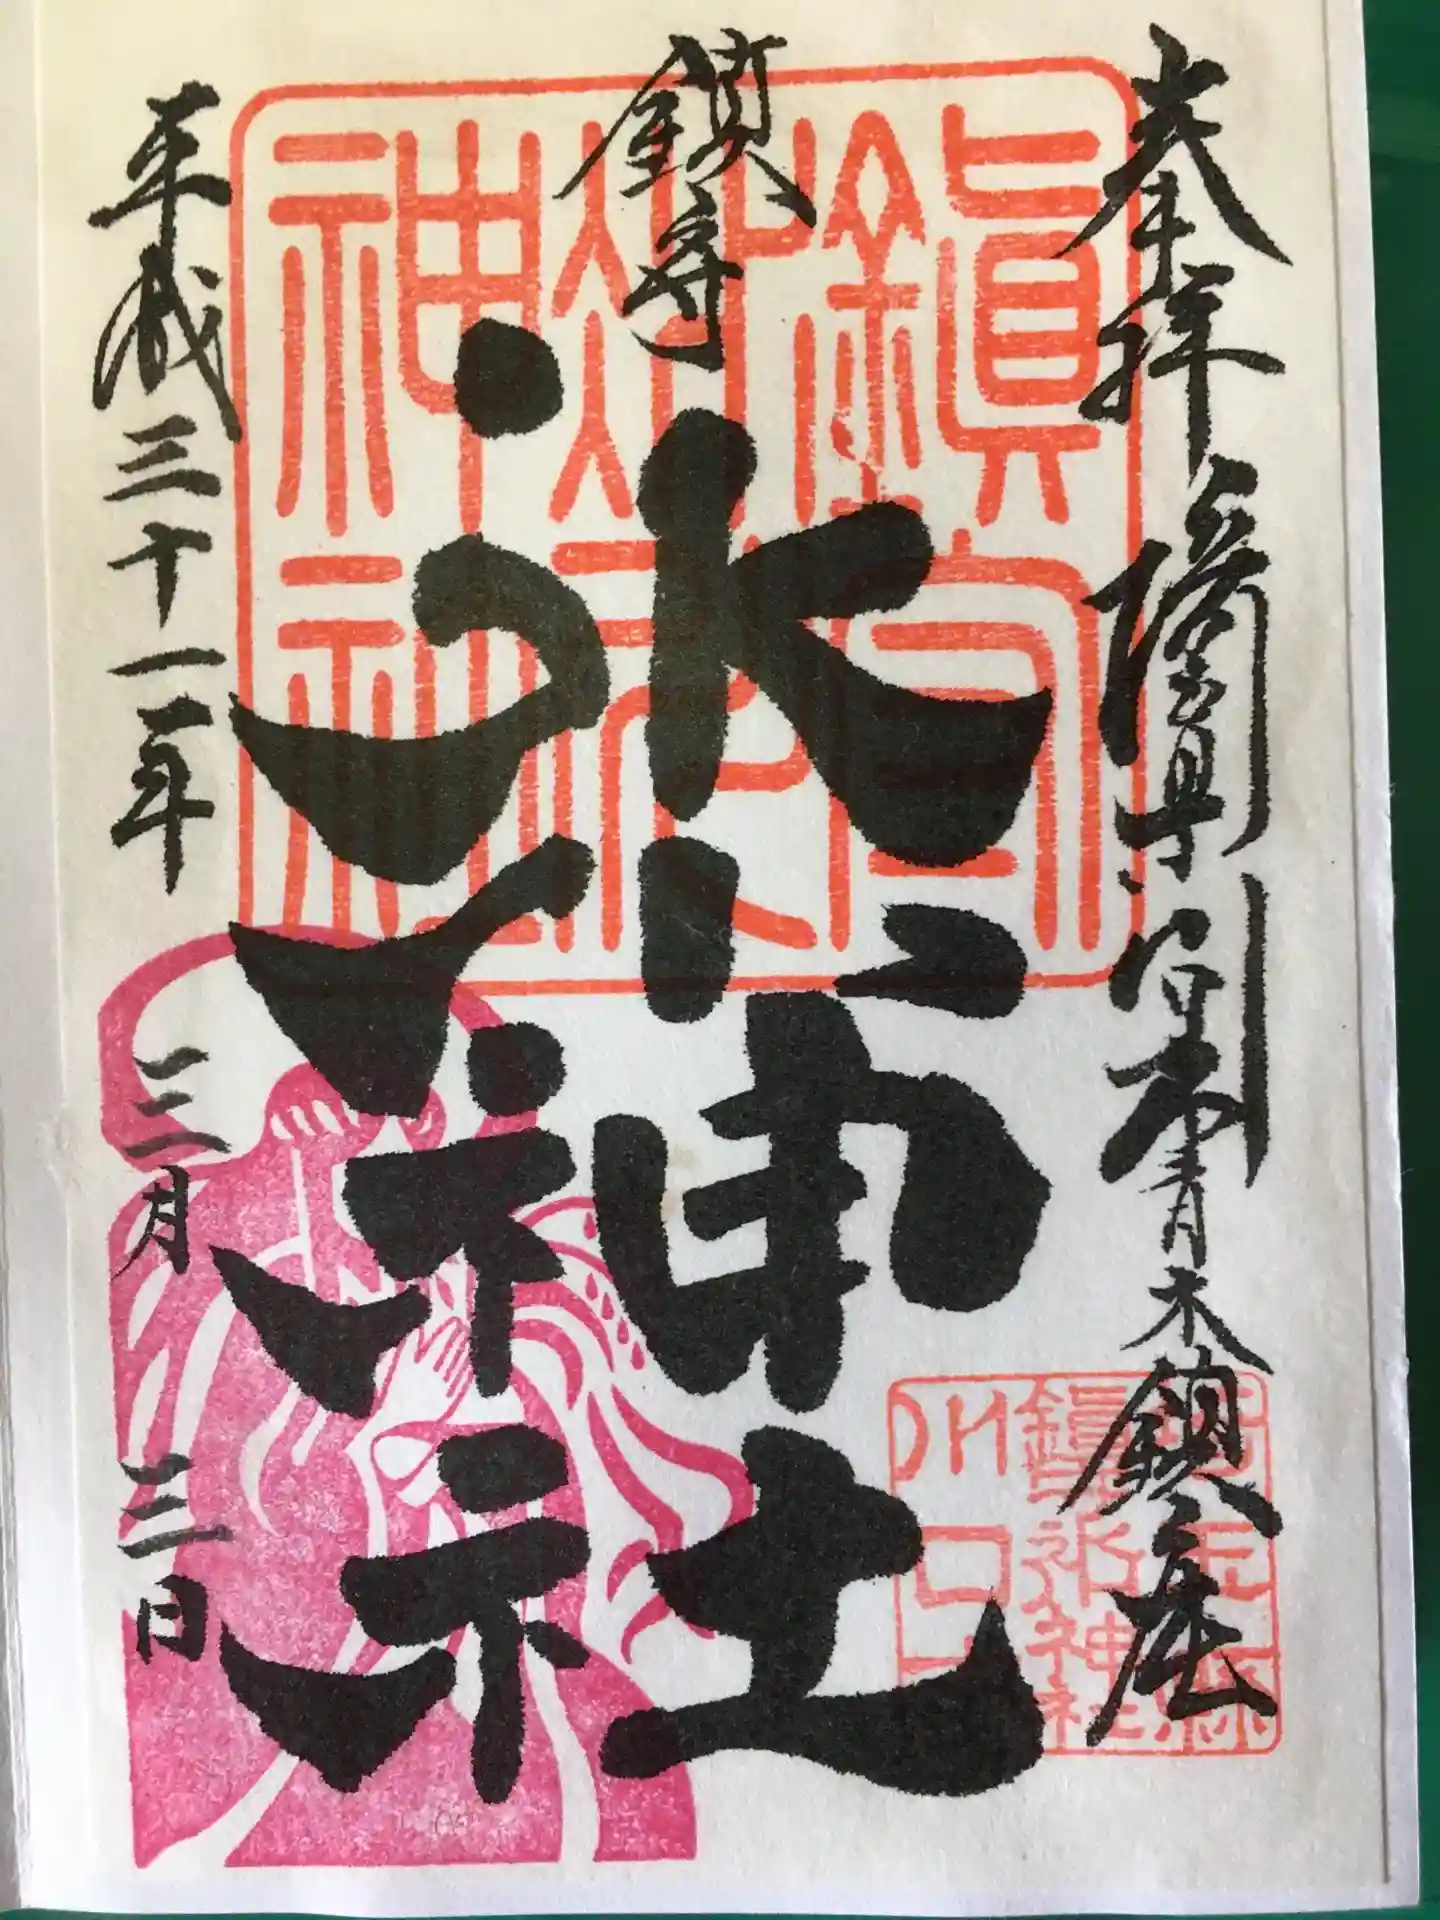 奉拝
青木鎮座
鎮守
氷川神社
平成三十一年 三月 三日
鎮守
氷川
神社
埼玉県
鎮守氷川神社
川口市